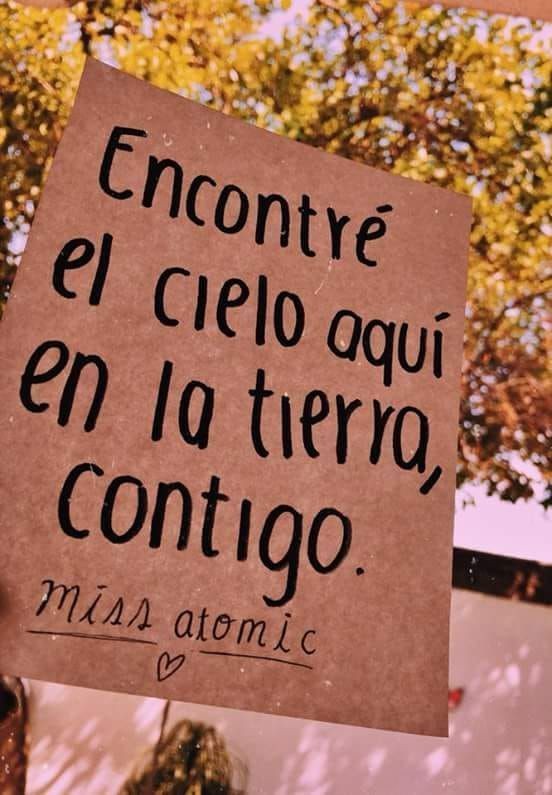 Encontré
el cielo aquí
en la tierra,
contigo.
miss atomic